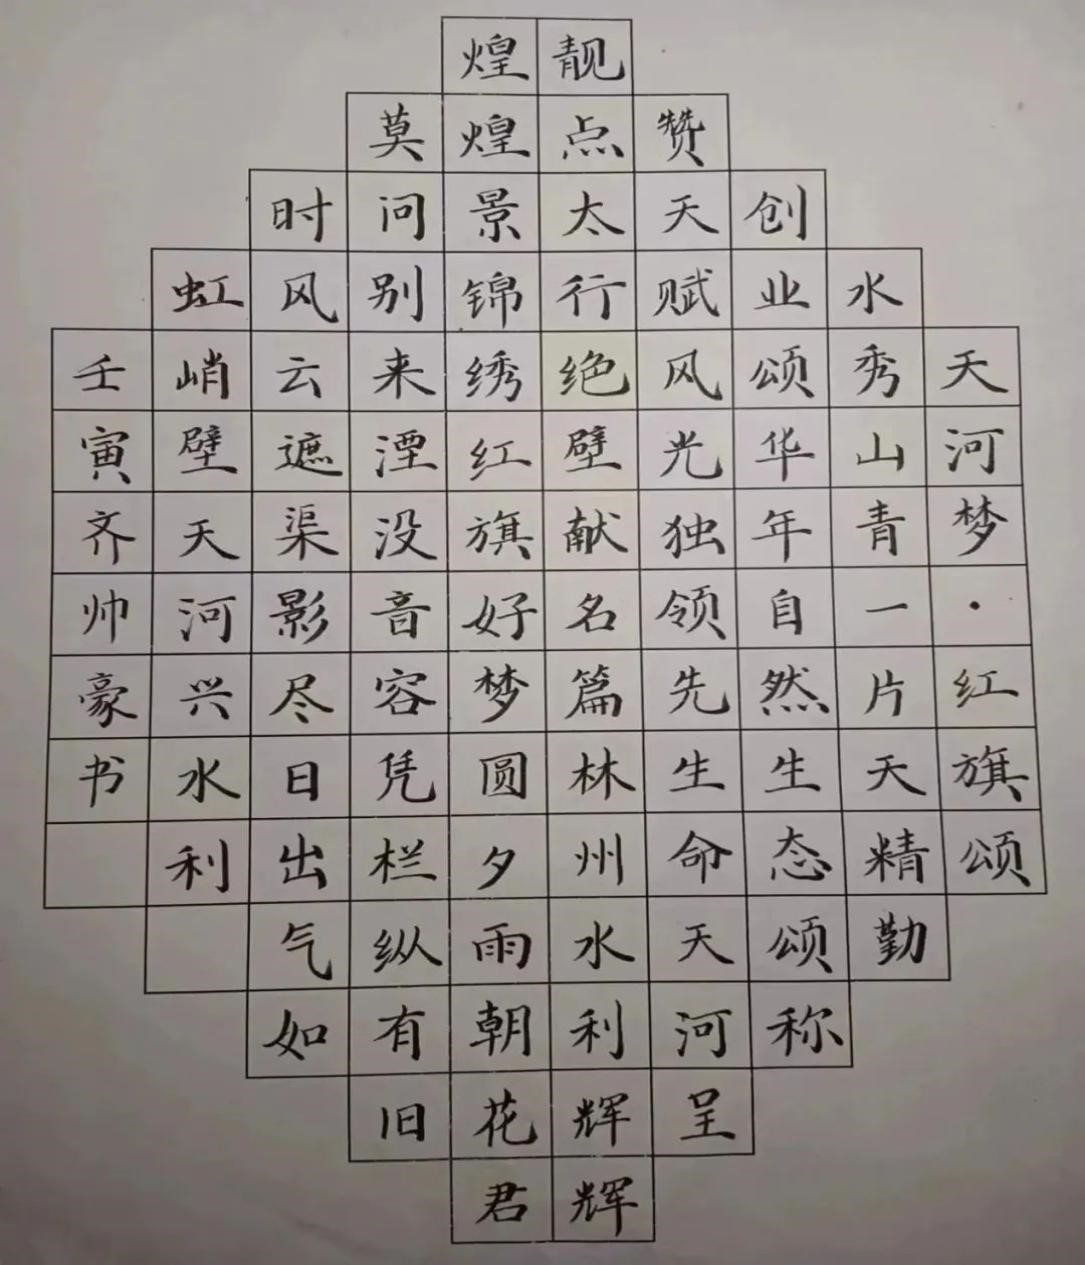 天河梦·红旗颂
水秀山青一片天精勤
创业颂华年自然生态颂称
赞天赋风光独领先生命天河呈
靓点太行绝壁献名篇林州水利辉辉
煌煌景锦绣红旗好梦圆夕雨朝花君
莫问别来湮没音容凭栏纵有旧
时风云遮渠影尽日出气如
虹峭壁天河兴水利
壬寅齐帅豪书